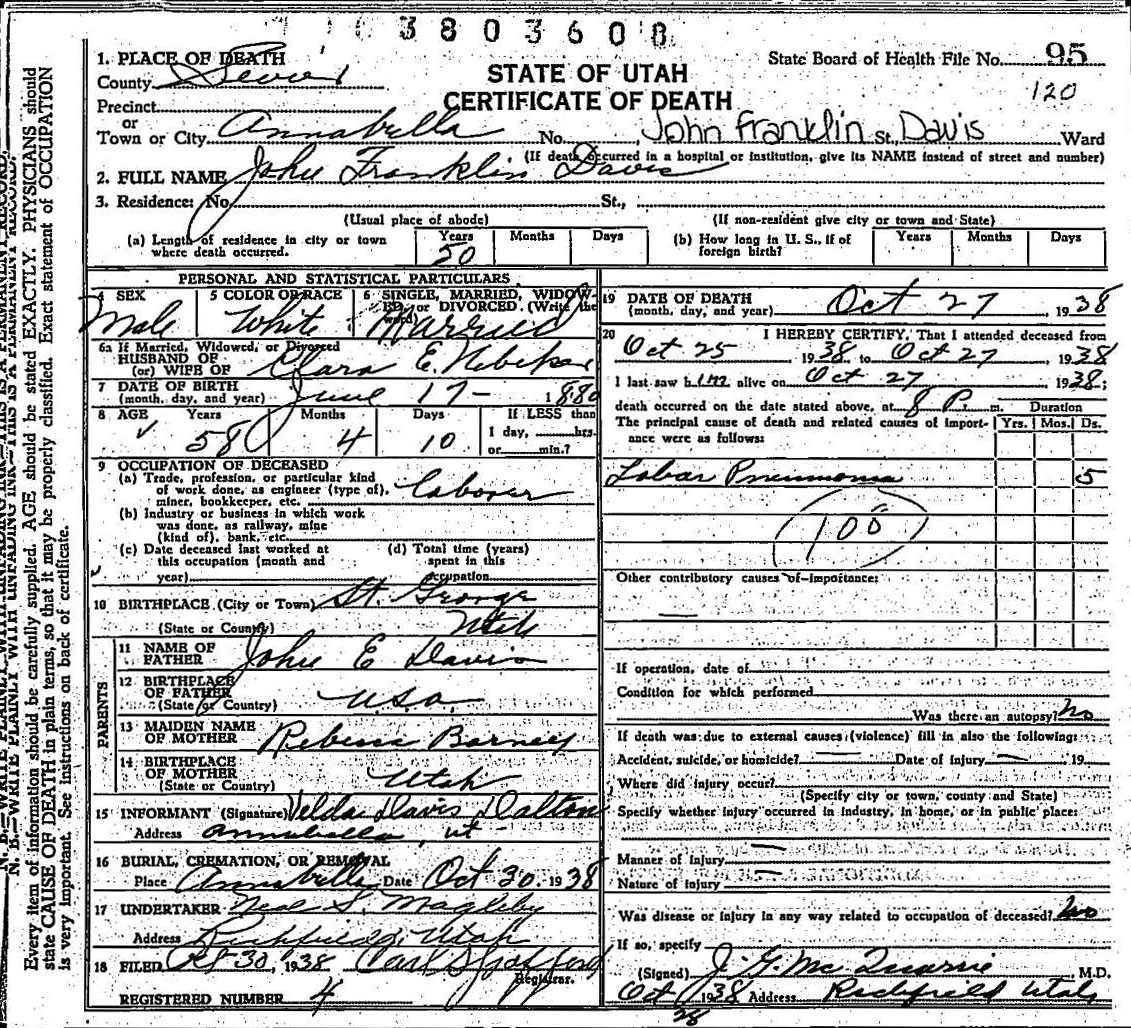 3803600
1. PLACE OF DEATH
County Sevier
STATE OF UTAH
CERTIFICATE OF DEATH
State Board of Health File No. 95
120
Precinct
or
Town or City Annabella No. John Franklin St. Davis Ward
(If death occurred in a hospital or institution, give its NAME instead of street and number)
2. FULL NAME John Franklin Davis
3. Residence: No. St.,
(Usual place of abode) (If non-resident give city or town and State)
(a) Length of residence in city or town where death occurred. Years 50 Months Days
(b) How long in U. S., if of foreign birth? Years Months Days
PERSONAL AND STATISTICAL PARTICULARS
4 SEX 5 COLOR OR RACE 6 SINGLE, MARRIED, WIDOWED, or DIVORCED. (Write the word)
Male White Married
6a If Married, Widowed, or Divorced
HUSBAND OF
(or) WIFE OF Clara E. Nebeker
7 DATE OF BIRTH
(month, day, and year) June 17 - 1880
8 AGE Years Months Days If LESS than
58 4 10 1 day, hrs.
or min.?
9 OCCUPATION OF DECEASED
(a) Trade, profession, or particular kind
of work done, as engineer (type of),
miner, bookkeeper, etc. Laborer
(b) Industry or business in which work
was done, as railway, mine
(kind of), bank, etc.
(c) Date deceased last worked at
this occupation (month and
year)
(d) Total time (years)
spent in this
occupation
10 BIRTHPLACE (City or Town) St. George
(State or Country) Utah
PARENTS
11 NAME OF
FATHER John E Davis
12 BIRTHPLACE
OF FATHER
(State or Country) U.S.A.
13 MAIDEN NAME
OF MOTHER Rebecca Barney
14 BIRTHPLACE
OF MOTHER
(State or Country) Utah
15 INFORMANT (Signature) Velda Davis Dalton
Address Annabella ut -
16 BURIAL, CREMATION, OR REMOVAL
Place Annabella Date Oct 30, 1938
17 UNDERTAKER Neal S. Magleby
Address Richfield, Utah
18 FILED Oct 30, 1938 Carl S Gafford
Registrar.
REGISTERED NUMBER 4
19 DATE OF DEATH
(month, day, and year) Oct 27, 1938
20 I HEREBY CERTIFY, That I attended deceased from
Oct 25, 1938, to Oct 27, 1938
I last saw him alive on Oct 27, 1938;
death occurred on the date stated above, at 8 P. m. Duration
The principal cause of death and related causes of importance were as follows: Yrs. Mos. Ds.
Lobar Pneumonia 5
108
Other contributory causes of importance:
If operation, date of
Condition for which performed
Was there an autopsy? No
If death was due to external causes (violence) fill in also the following:
Accident, suicide, or homicide? Date of injury 19
Where did injury occur?
(Specify city or town, county and State)
Specify whether injury occurred in industry, in home, or in public place:
Manner of Injury
Nature of injury
Was disease or injury in any way related to occupation of deceased? No
If so, specify
(Signed) J. G. McQuarrie M.D.
Oct 28 1938 Address Richfield Utah
N. B.—WRITE PLAINLY, WITH UNFADING INK—THIS IS A PERMANENT RECORD.
Every item of information should be carefully supplied. AGE should be stated EXACTLY. PHYSICIANS should
state CAUSE OF DEATH in plain terms, so that it may be properly classified. Exact statement of OCCUPATION
is very important. See instructions on back of certificate.